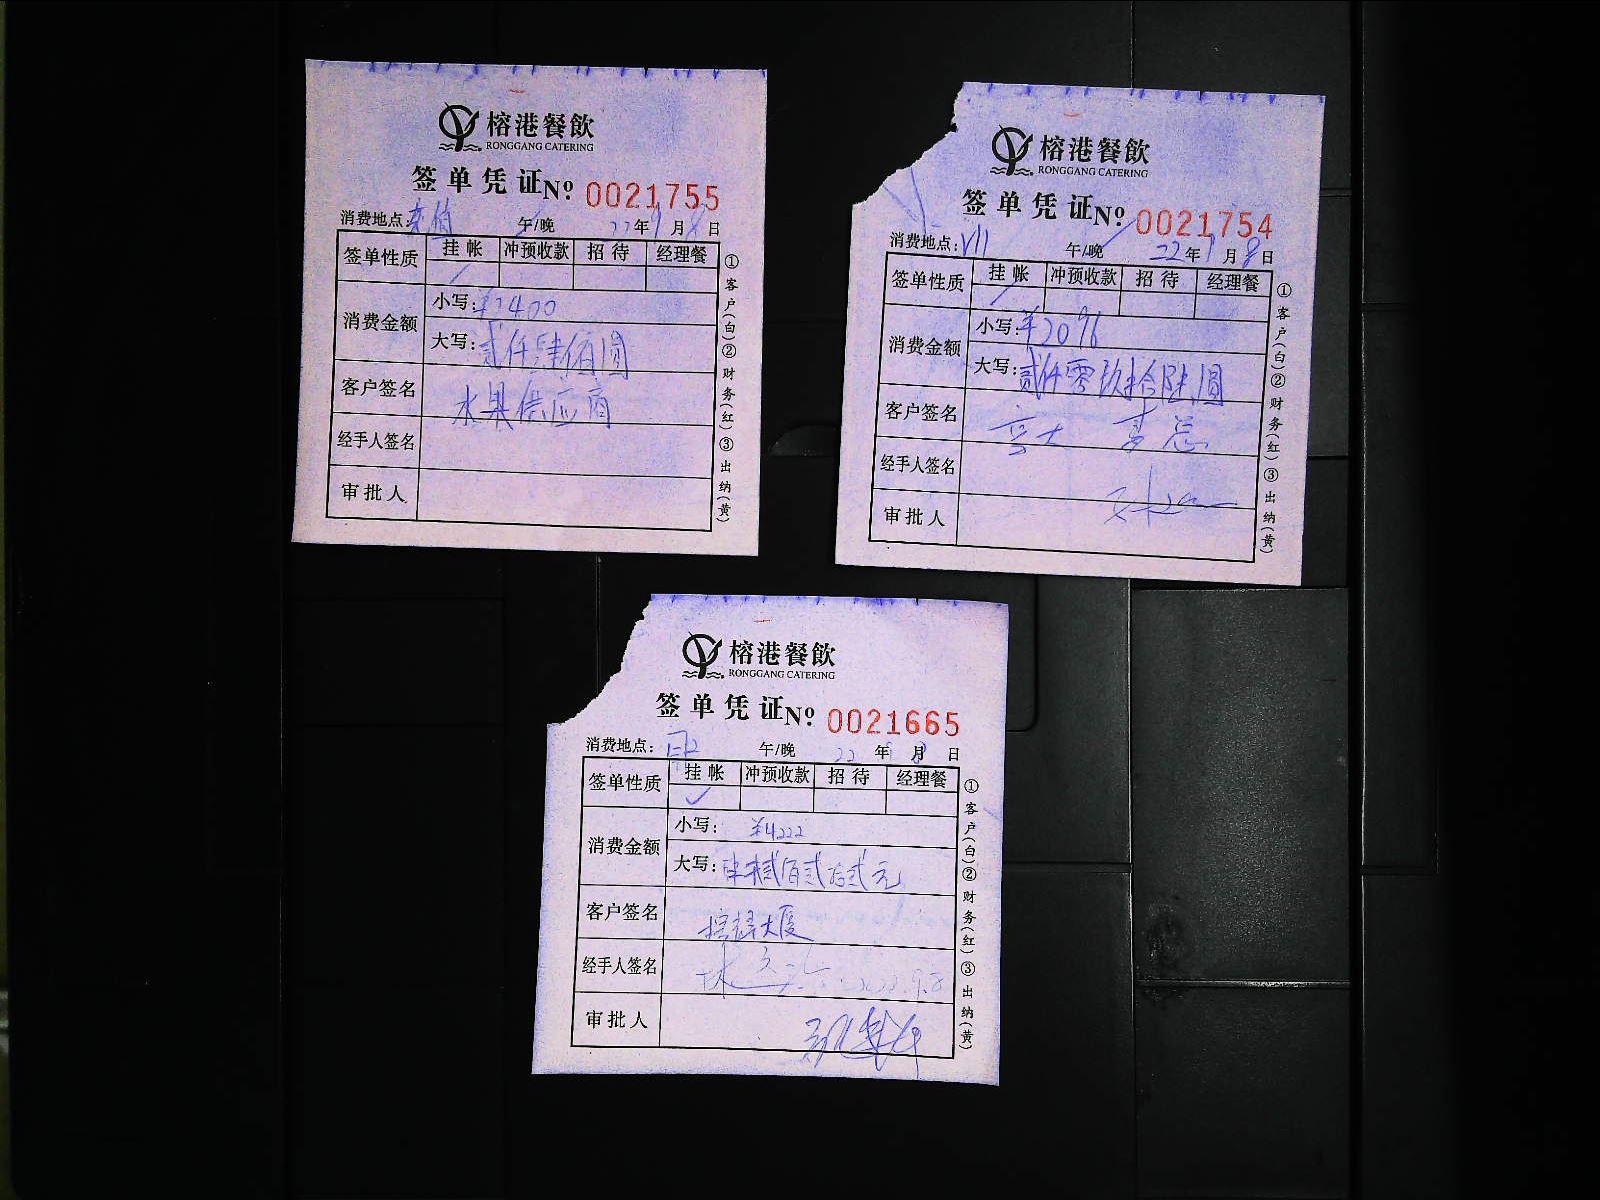 榕港餐飲
RONGGANG CATERING
签单凭证 Nº 0021755
消费地点: 午/晚 22年9月8日
签单性质 挂帐 冲预收款 招待 经理餐
消费金额 小写:¥2400
大写:贰仟肆佰圆
客户签名 水果供应商
经手人签名
审批人
①客户(白)②财务(红)③出纳(黄)
榕港餐飲
RONGGANG CATERING
签单凭证 Nº 0021754
消费地点: V11 午/晚 22年9月8日
签单性质 挂帐 冲预收款 招待 经理餐
消费金额 小写:¥2096
大写:贰仟零玖拾陆圆
客户签名
经手人签名
审批人
①客户(白)②财务(红)③出纳(黄)
榕港餐飲
RONGGANG CATERING
签单凭证 Nº 0021665
消费地点: 午/晚 22年9月8日
签单性质 挂帐 冲预收款 招待 经理餐
✓
消费金额 小写: ¥4222
大写:肆仟贰佰贰拾贰元
客户签名 大厦
经手人签名 2022.9.8
审批人
①客户(白)②财务(红)③出纳(黄)